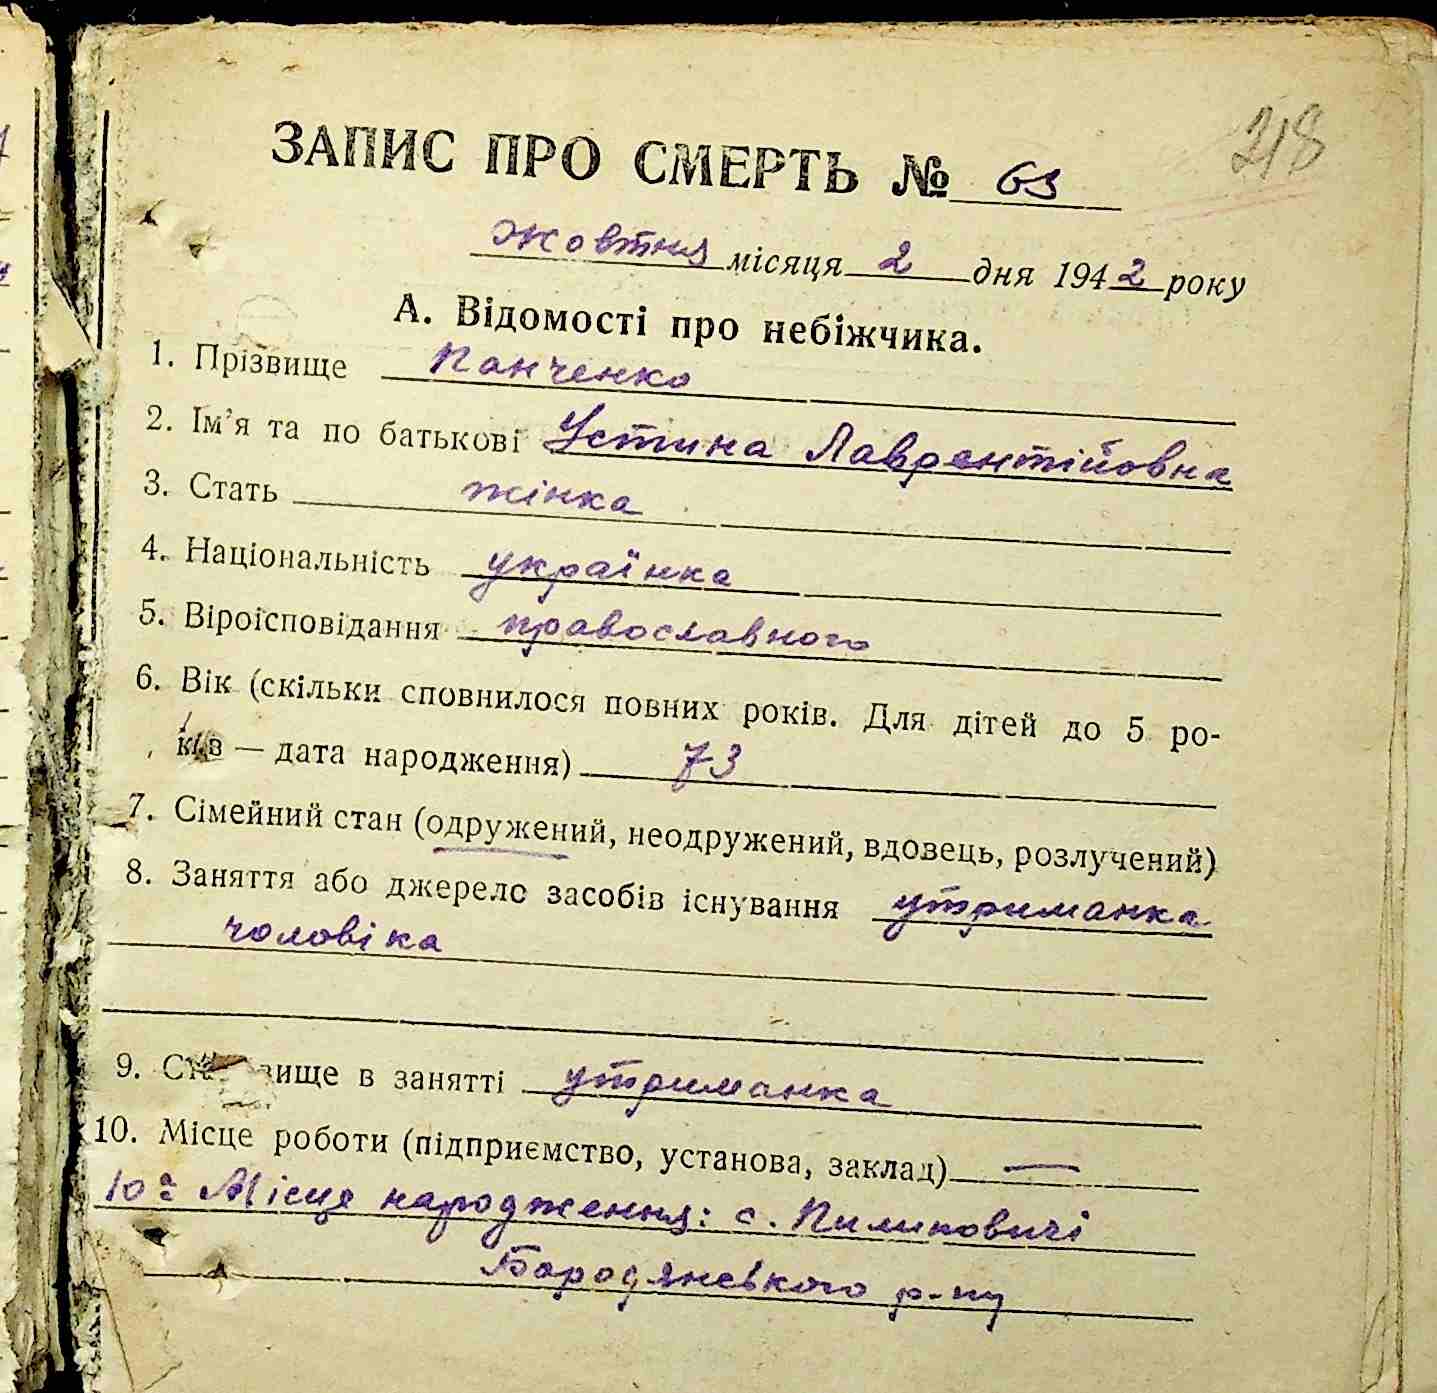 218
ЗАПИС ПРО СМЕРТЬ № 63
жовтня місяця 2 дня 1942 року
А. Відомості про небіжчика.
1. Прізвище Панченко
2. Ім’я та по батькові Устина Лаврентійовна
3. Стать жінка
4. Національність українка
5. Віроісповідання православного
6. Вік (скільки сповнилося повних років. Для дітей до 5 ро-
ків — дата народження) 73
7. Сімейний стан (одружений, неодружений, вдовець, розлучений)
8. Заняття або джерело засобів існування утриманка
чоловіка
9. вище в занятті утриманка
10. Місце роботи (підприємство, установа, заклад) —
10а Місце народження: с. Пилиповичі
Бородянського р-ну